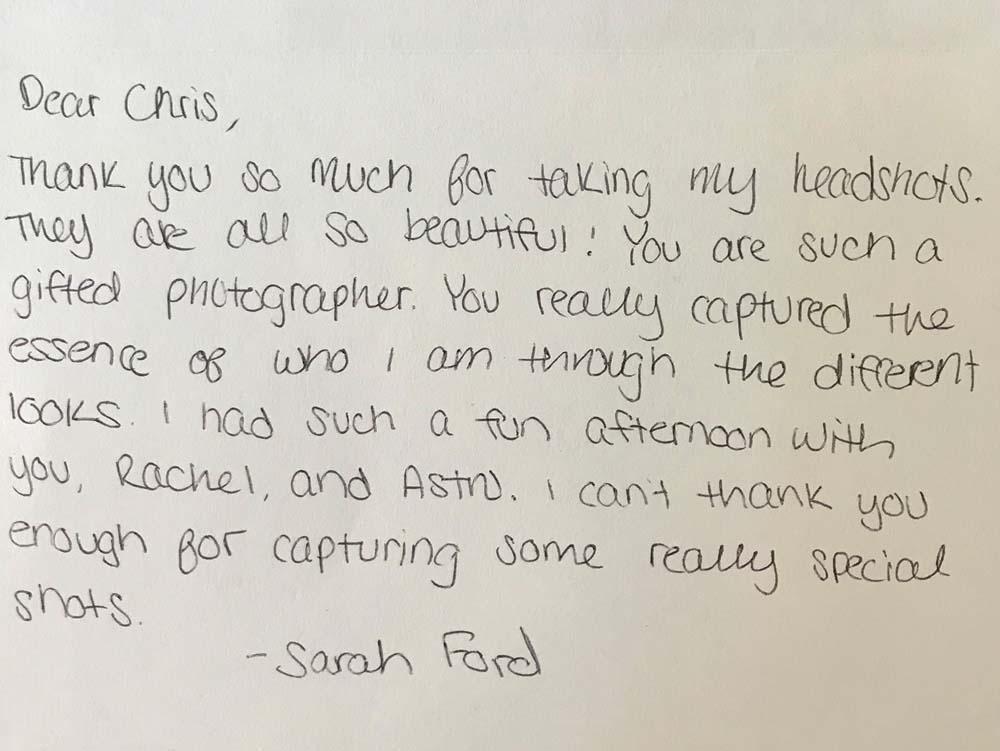 Dear Chris,
Thank you so much for taking my headshots.
They are all so beautiful! You are such a
gifted photographer. You really captured the
essence of who I am through the different
looks. I had such a fun afternoon with
you, Rachel, and . I can't thank you
enough for capturing some really special
shots.
-Sarah Ford